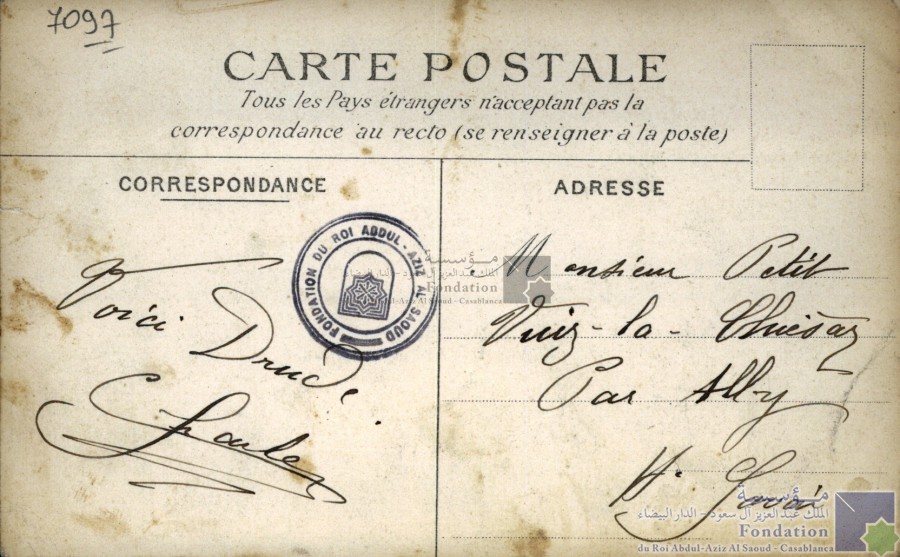 7097
CARTE POSTALE
Tous les Pays étrangers n'acceptant pas la
correspondance au recto (se renseigner à la poste)
CORRESPONDANCE
ADRESSE
FONDATION DU ROI ABDUL-AZIZ AL SAOUD
مؤسسة
الملك عبد العزيز آل سعود - الدار البيضاء
Fondation
du Roi Abdul-Aziz Al Saoud - Casablanca
Voici
Charles
Monsieur Petit
Viuz-la-Chiésaz
Par Alby
Hte Savoie
مؤسسة
الملك عبد العزيز آل سعود - الدار البيضاء
Fondation
du Roi Abdul-Aziz Al Saoud - Casablanca